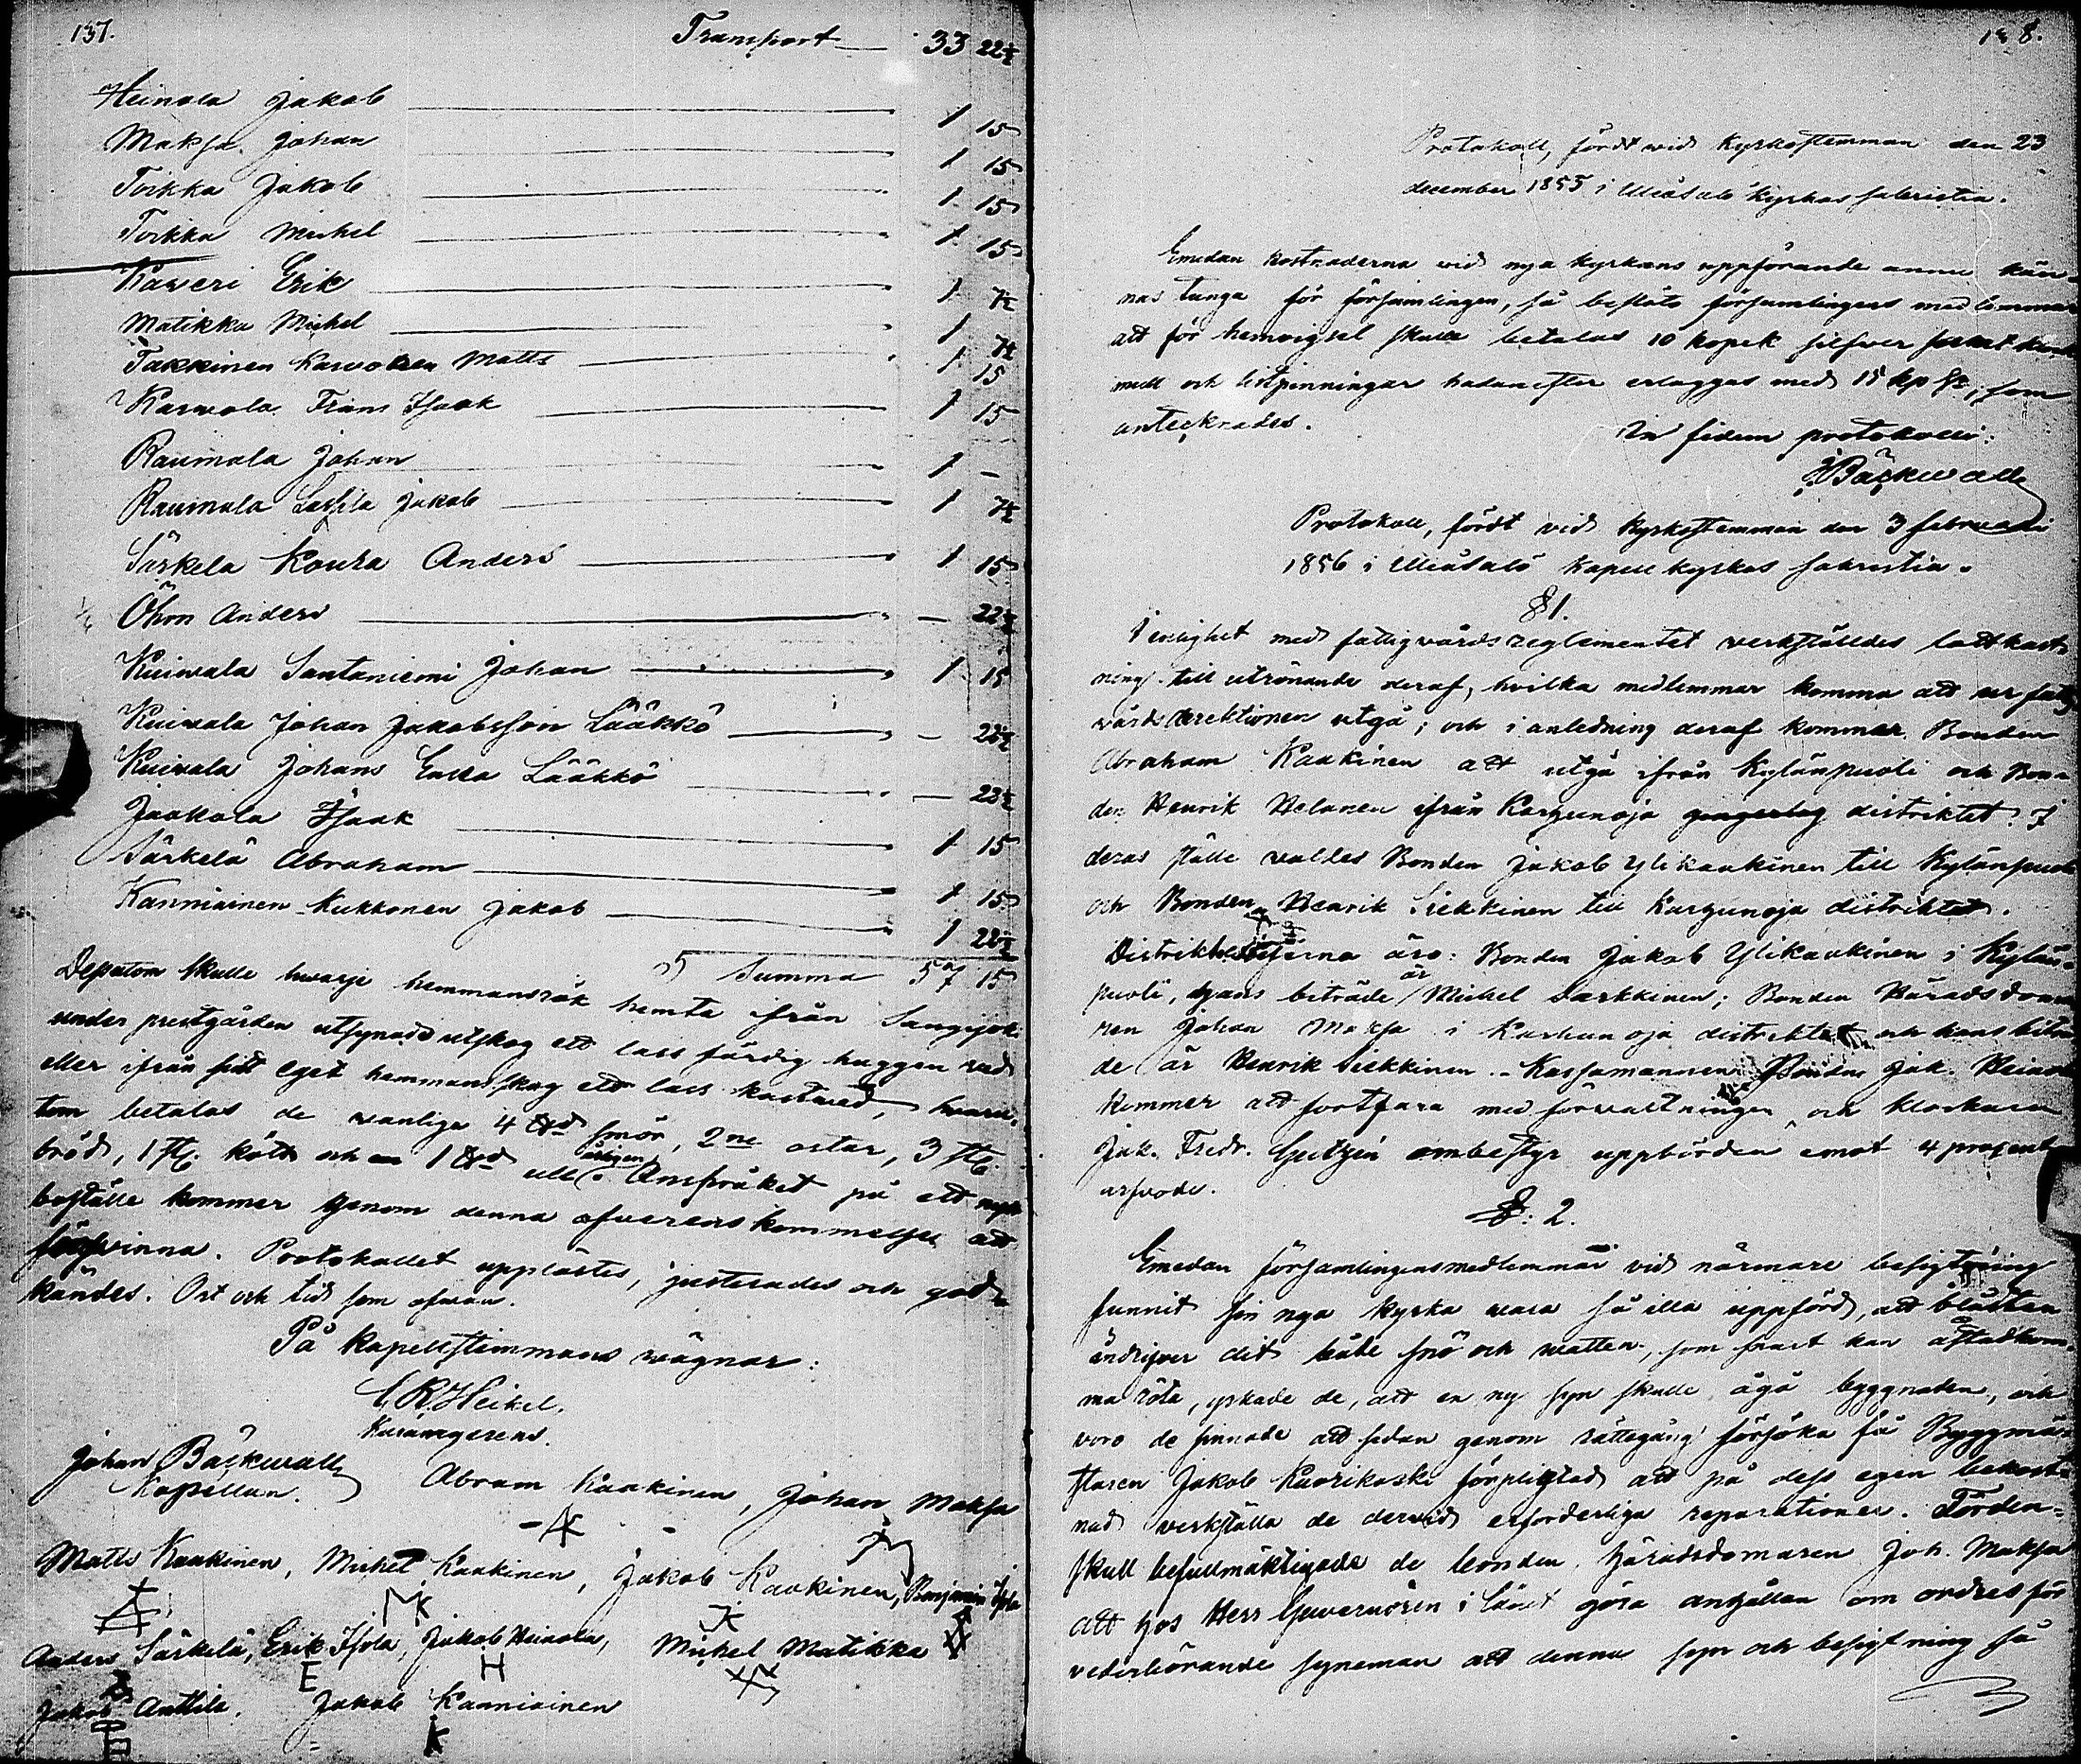 137.
Transport — 33 22½
Heinola Jakob — 1 15
Maksa Johan — 1 15
Toikka Jakob — 1 15
Toikka Michel — 1 15
Kaveri Erik — 1 7½
Matikka Michel — 1 7½
Takkinen Karvonen Matts — 1 15
Karvola Frans Isaak — 1 15
Raumala Johan — 1 —
Raumala Lassila Jakob — 1 7½
Särkelä Koura Anders — 1 15
Öhm Anders — — 22½
Kuivala Santaniemi Johan — 1 15
Kuivala Johan Jakobsson Lääkkö — — 22½
Kuivala Johans Enka Lääkkö — — 22½
Jaakola Isaak — 1 15
Särkelä Abraham — 1 15
Kanniainen Kukkonen Jakob — 1 22½
Summa 57 15
Dessutom skulle hwarje hemmansrök hemta ifrån Sangijoki
under prestgården utsynade utskog ett lass färdig huggen ved
eller ifrån sitt eget hemmansskog ett lass kastved, hvaru-
tom betalas de wanliga 4 smör, 2ne ostar, 3
bröd, 1 kött och 1 ull årligen. Anspråket på ett
boställe kommer genom denna öfverenskommelse att
försvinna. Protokollet upplästes, justerades och god-
kändes. Ort och tid som ofvan.
På kapellstemmans wägnar:
C. R. Heikel.
Johan Bäckwall
Kapellan.
Abram Kaakinen, Johan Maksa
AK
Matts Kaakinen, Michel Kaakinen, Jakob Kaakinen, Benjamin
MK JK
Anders Särkelä, Erik Isola, Jakob Heinola, Michel Matikka
E H
Jakob Anttila. Jakob Kanniainen
K
138.
Protokoll, fördt wid Kyrkostemman den 23
december 1855 i kyrkas sakristia.
Emedan kostnaderna wid nya kyrkans uppförande ännu kän-
nas tunga för församlingen, så beslöto församlingens medlemmar
att för hemvigsel skulle betalas 10 kopek silfver
medl och listpenningar hädanefter erläggas med 15 kp Sr, som
antecknades.
In fidem protocolli:
J Bäckwall
Protokoll, fördt vid Kyrkostemman den 3 februari
1856 i kapell kyrkas sakristia.
§ 1.
I enlighet med fattigvårdsreglementet verkställdes lottkast-
ning till utrönande deraf, hvilka medlemmar komma att ur fattig-
vårdsdirektionen utgå; och i anledning deraf kommer Bonden
Abraham Kaakinen att utgå ifrån Kylänpuoli och Bon-
den Henrik Helanen ifrån Karhunoja distriktet. I
deras ställe valdes Bonden Jakob Ylikaakinen till Kylänpuoli
och Bonden Henrik Siekkinen till Karhunoja distriktet.
äro: Bonden Jakob Ylikaakinen i Kylän-
puoli, hans biträde är Michel Sarkkinen; Bonden Häradsdoma-
ren Johan Maksa i Karhunoja distriktet och hans biträ-
de är Henrik Siekkinen. Kassamannen Bonden Jak. Heinola
kommer att fortfara med förvaltningen och klockaren
Jak. Fredr. Gutzén ombestyr uppbörden emot 4 procent
arfvode.
§. 2.
Emedan församlingensmedlemmar vid närmare besigtning
funnit sin nya kyrka vara så illa uppförd, att blåsten
indrifver dit både snö och watten, som snart kan åstadkom-
ma röta, yrkade de, att en ny syn skulle ägå byggnaden, och
voro de sinnade att sedan genom rättegång försöka få Byggmä-
staren Jakob Kuorikoski förpligtad att på dess egen bekost-
nad verkställa de dervid erforderliga reparationer. Förden-
skull befullmäktigade de bonden, häradsdomaren Joh. Maksa
att hos Herr Guvernören i länet göra anhållan om ordres för
vederbörande syneman att denna syn och besigtning få